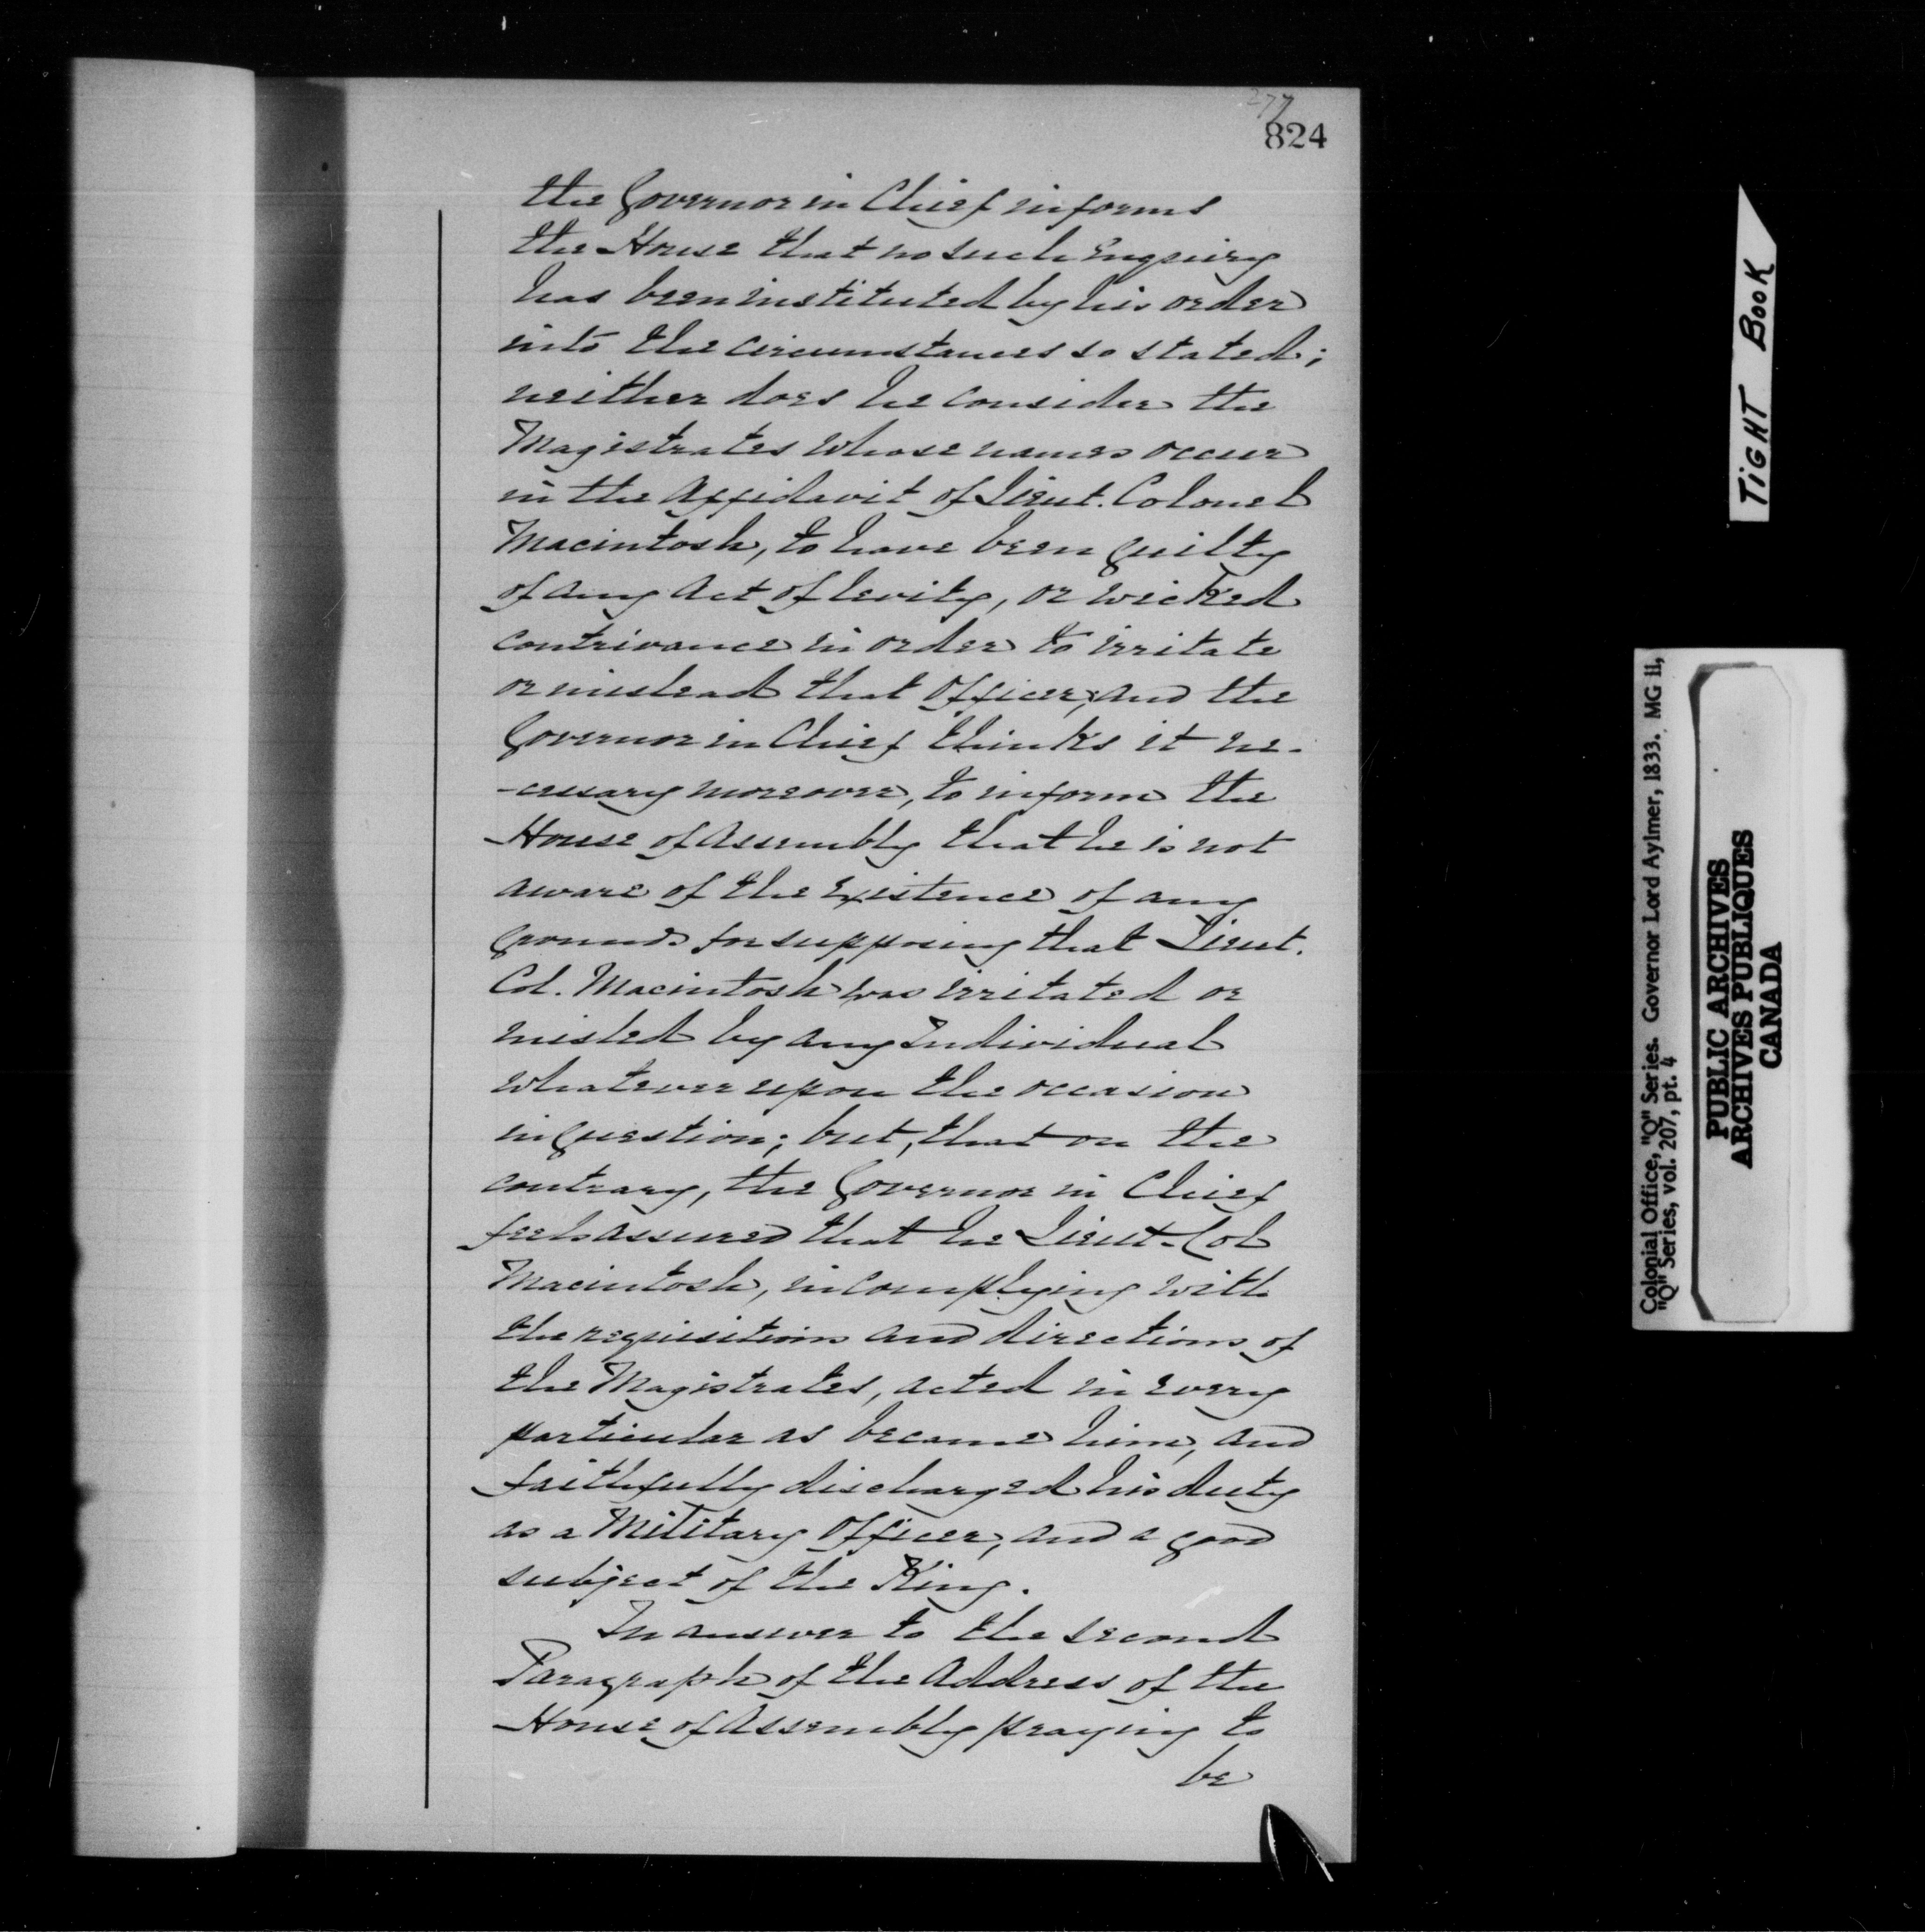 277
824
the Governor in Chief informs
the House that no such Enquiry
has been instituted by his order
into the circumstances so stated;
neither does he consider the
Magistrates whose names occur
in the Affidavit of Lieut. Colonel
Macintosh, to have been guilty
of any act of levity, or wicked
contrivance in order to irritate
or mislead that Officer; and the
Governor in Chief thinks it ne-
-cessary moreover, to inform the
House of Assembly that he is not
aware of the Existence of any
grounds for supposing that Lieut.
Col. Macintosh was irritated or
misled by any Individual
whatever upon the occasion
in question; but, that on the
contrary, the Governor in Chief
feels assured that he Lieut-Col
Macintosh, in complying with
the requisitions and directions of
the Magistrates, acted in Every
particular as became him, and
faithfully discharged his duty
as a Military Officer, and a good
subject of the King.
In answer to the second
Paragraph of the Address of the
House of Assembly praying to
be
TIGHT BOOK
Colonial Office, "Q" Series. Governor Lord Aylmer, 1833. MG 11,
"Q" Series, vol. 207, pt. 4
PUBLIC ARCHIVES
ARCHIVES PUBLIQUES
CANADA